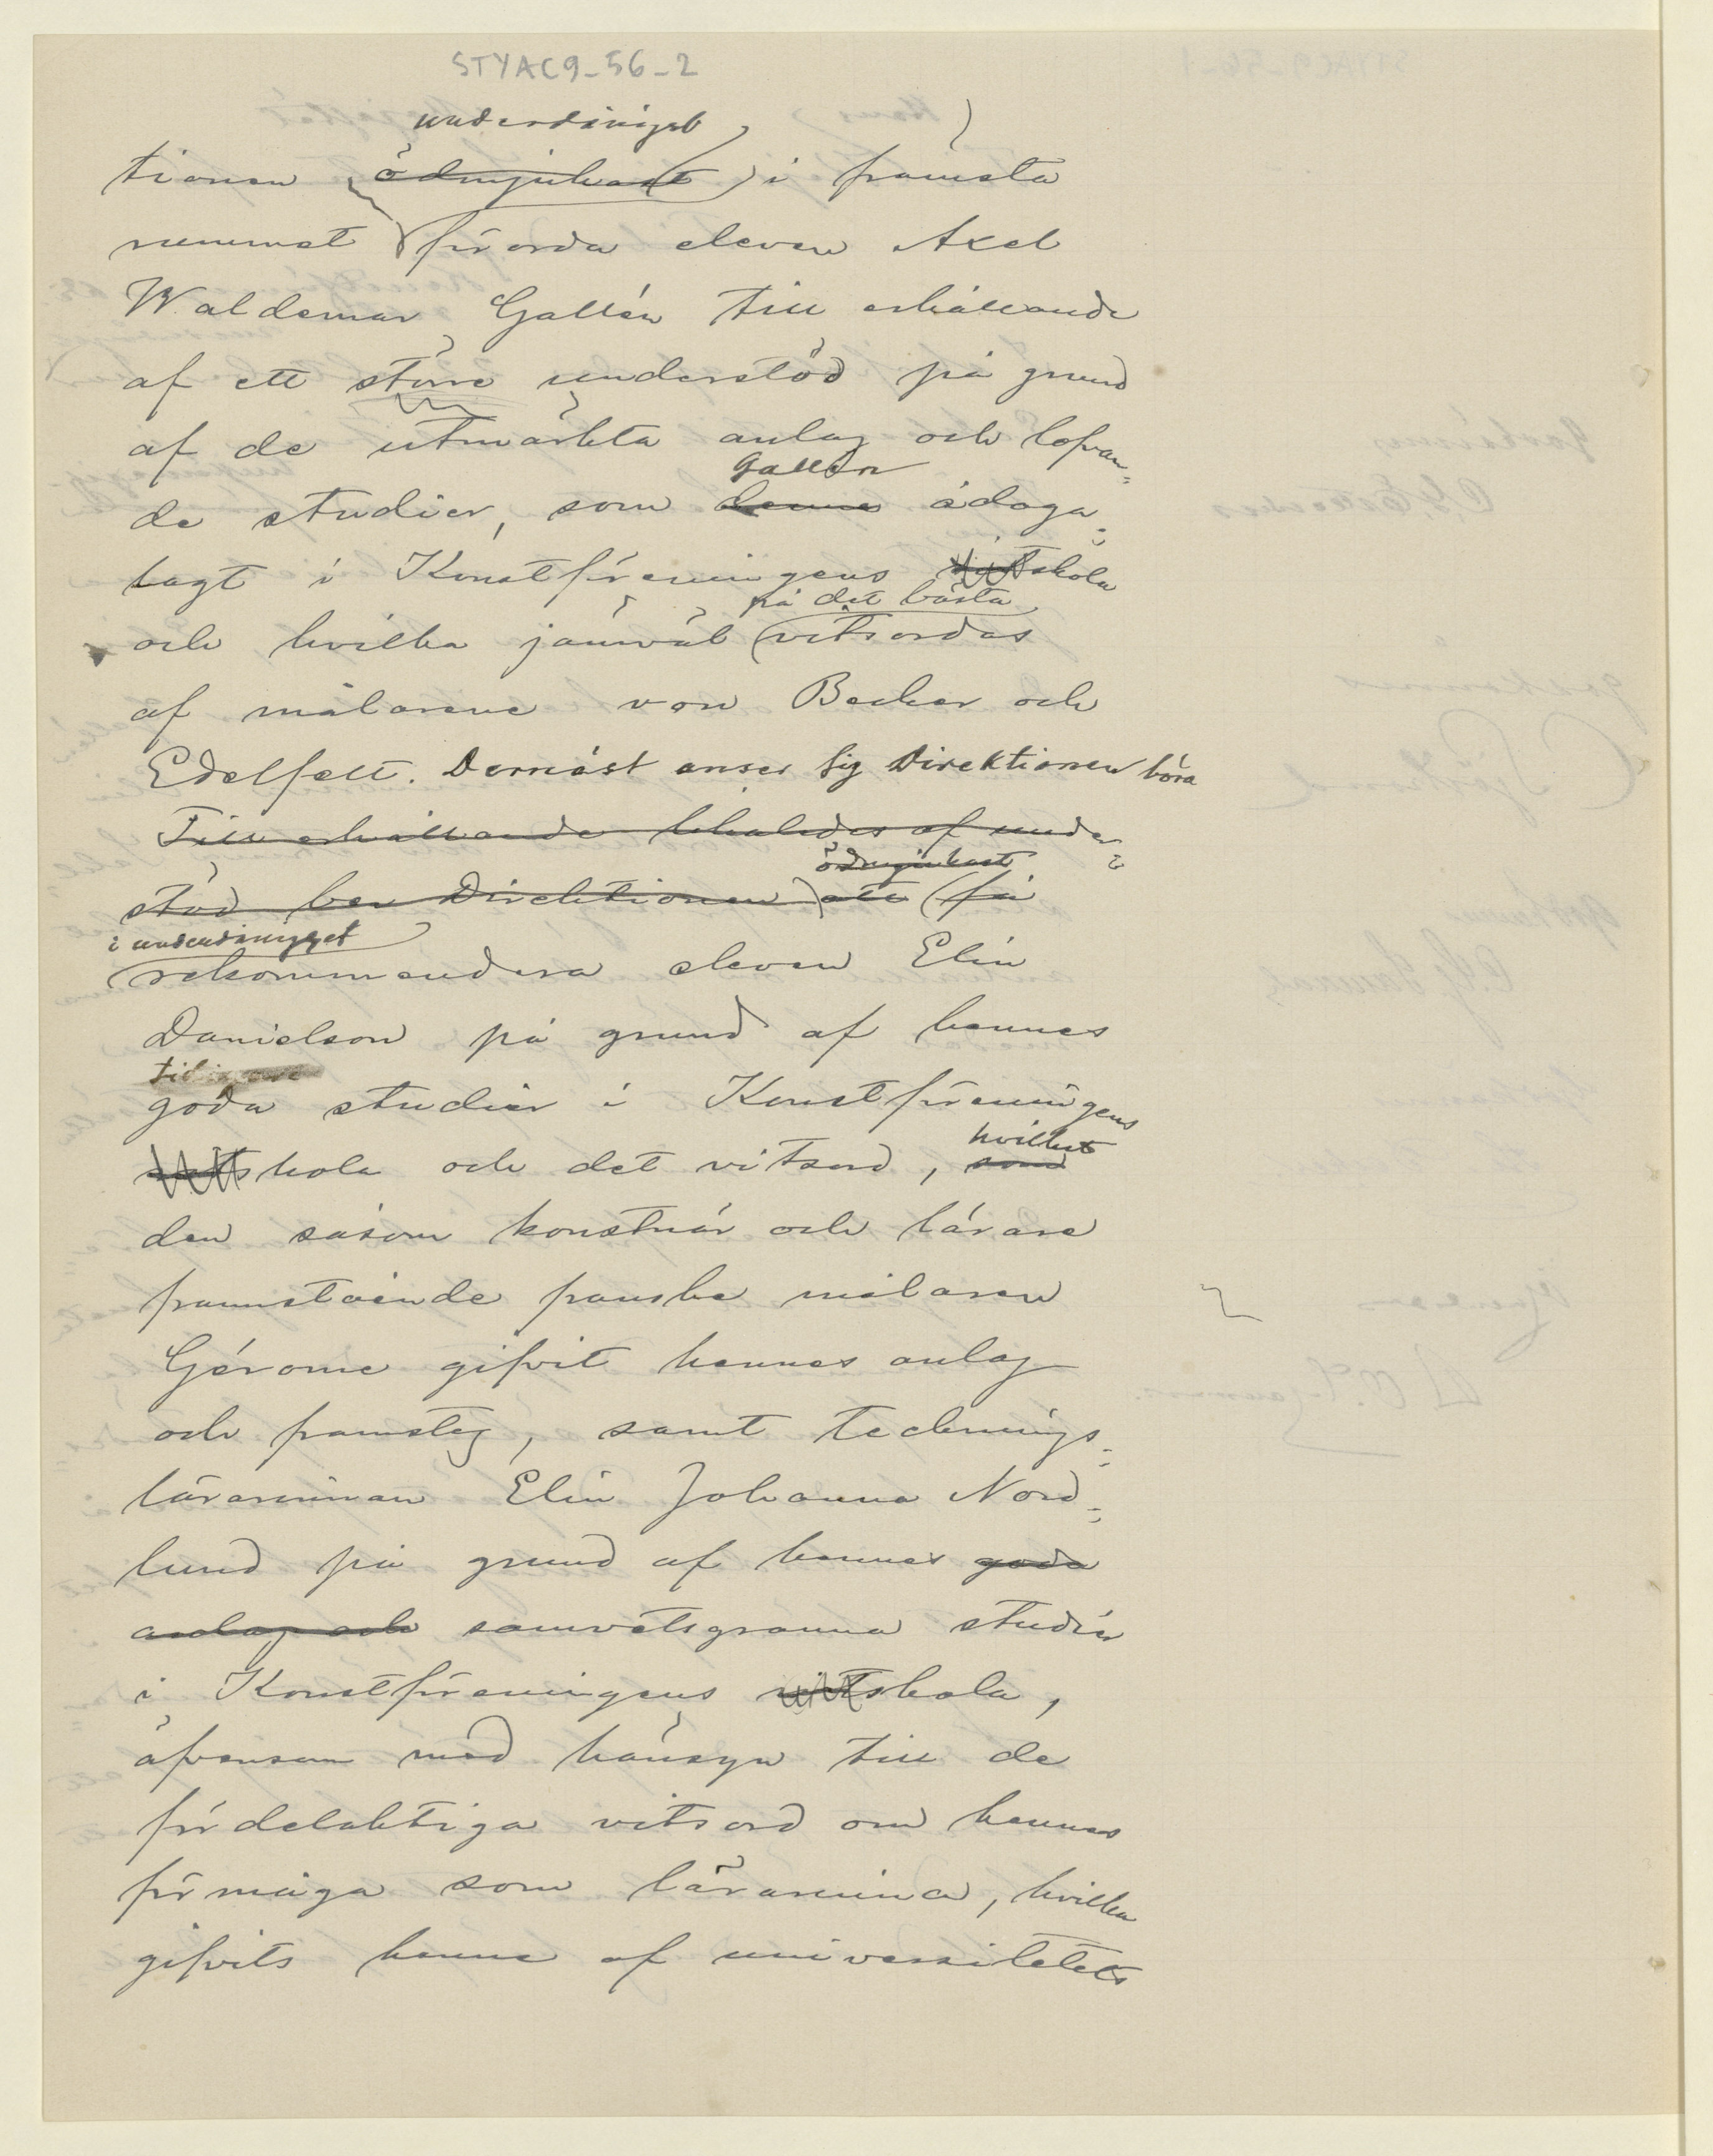 STYAC9-56-2
underdånigst
tionen ödmjukast i främsta
rummet förorda eleven Axel
Waldemar Gallén till erhållande
af ett större understöd på grund
af de utmärkta anlag och lofvan=
Gallén
de studier, som denne ådaga=
lagt i Konstföreningens ritskola
på det bästa
och hvilka jämväl vitsordas
af målarene von Becker och
Edelfelt. Dernäst anser sig Direktionen böra
Till erhållande likaledes af under=
ödmjukast
stöd ber Direktionen att få
i underdånighet
rekommendera eleven Elin
Danielson på grund af hennes
goda studier i Konstföreningens
hvilket
ritskola och det vitsord, som
den såsom konstnär och lärare
framstående franske målaren
Gérome gifvit hennes anlag
och framsteg, samt tecknings=
lärarinnan Elin Johanna Nord=
lund på grund af hennes goda
anlag och samvetsgranna studier
i Konstföreningens ritskola,
äfvensom med hänsyn till de
fördelaktiga vitsord om hennes
förmåga som lärarinna, hvilka
gifvits henne af universitetets